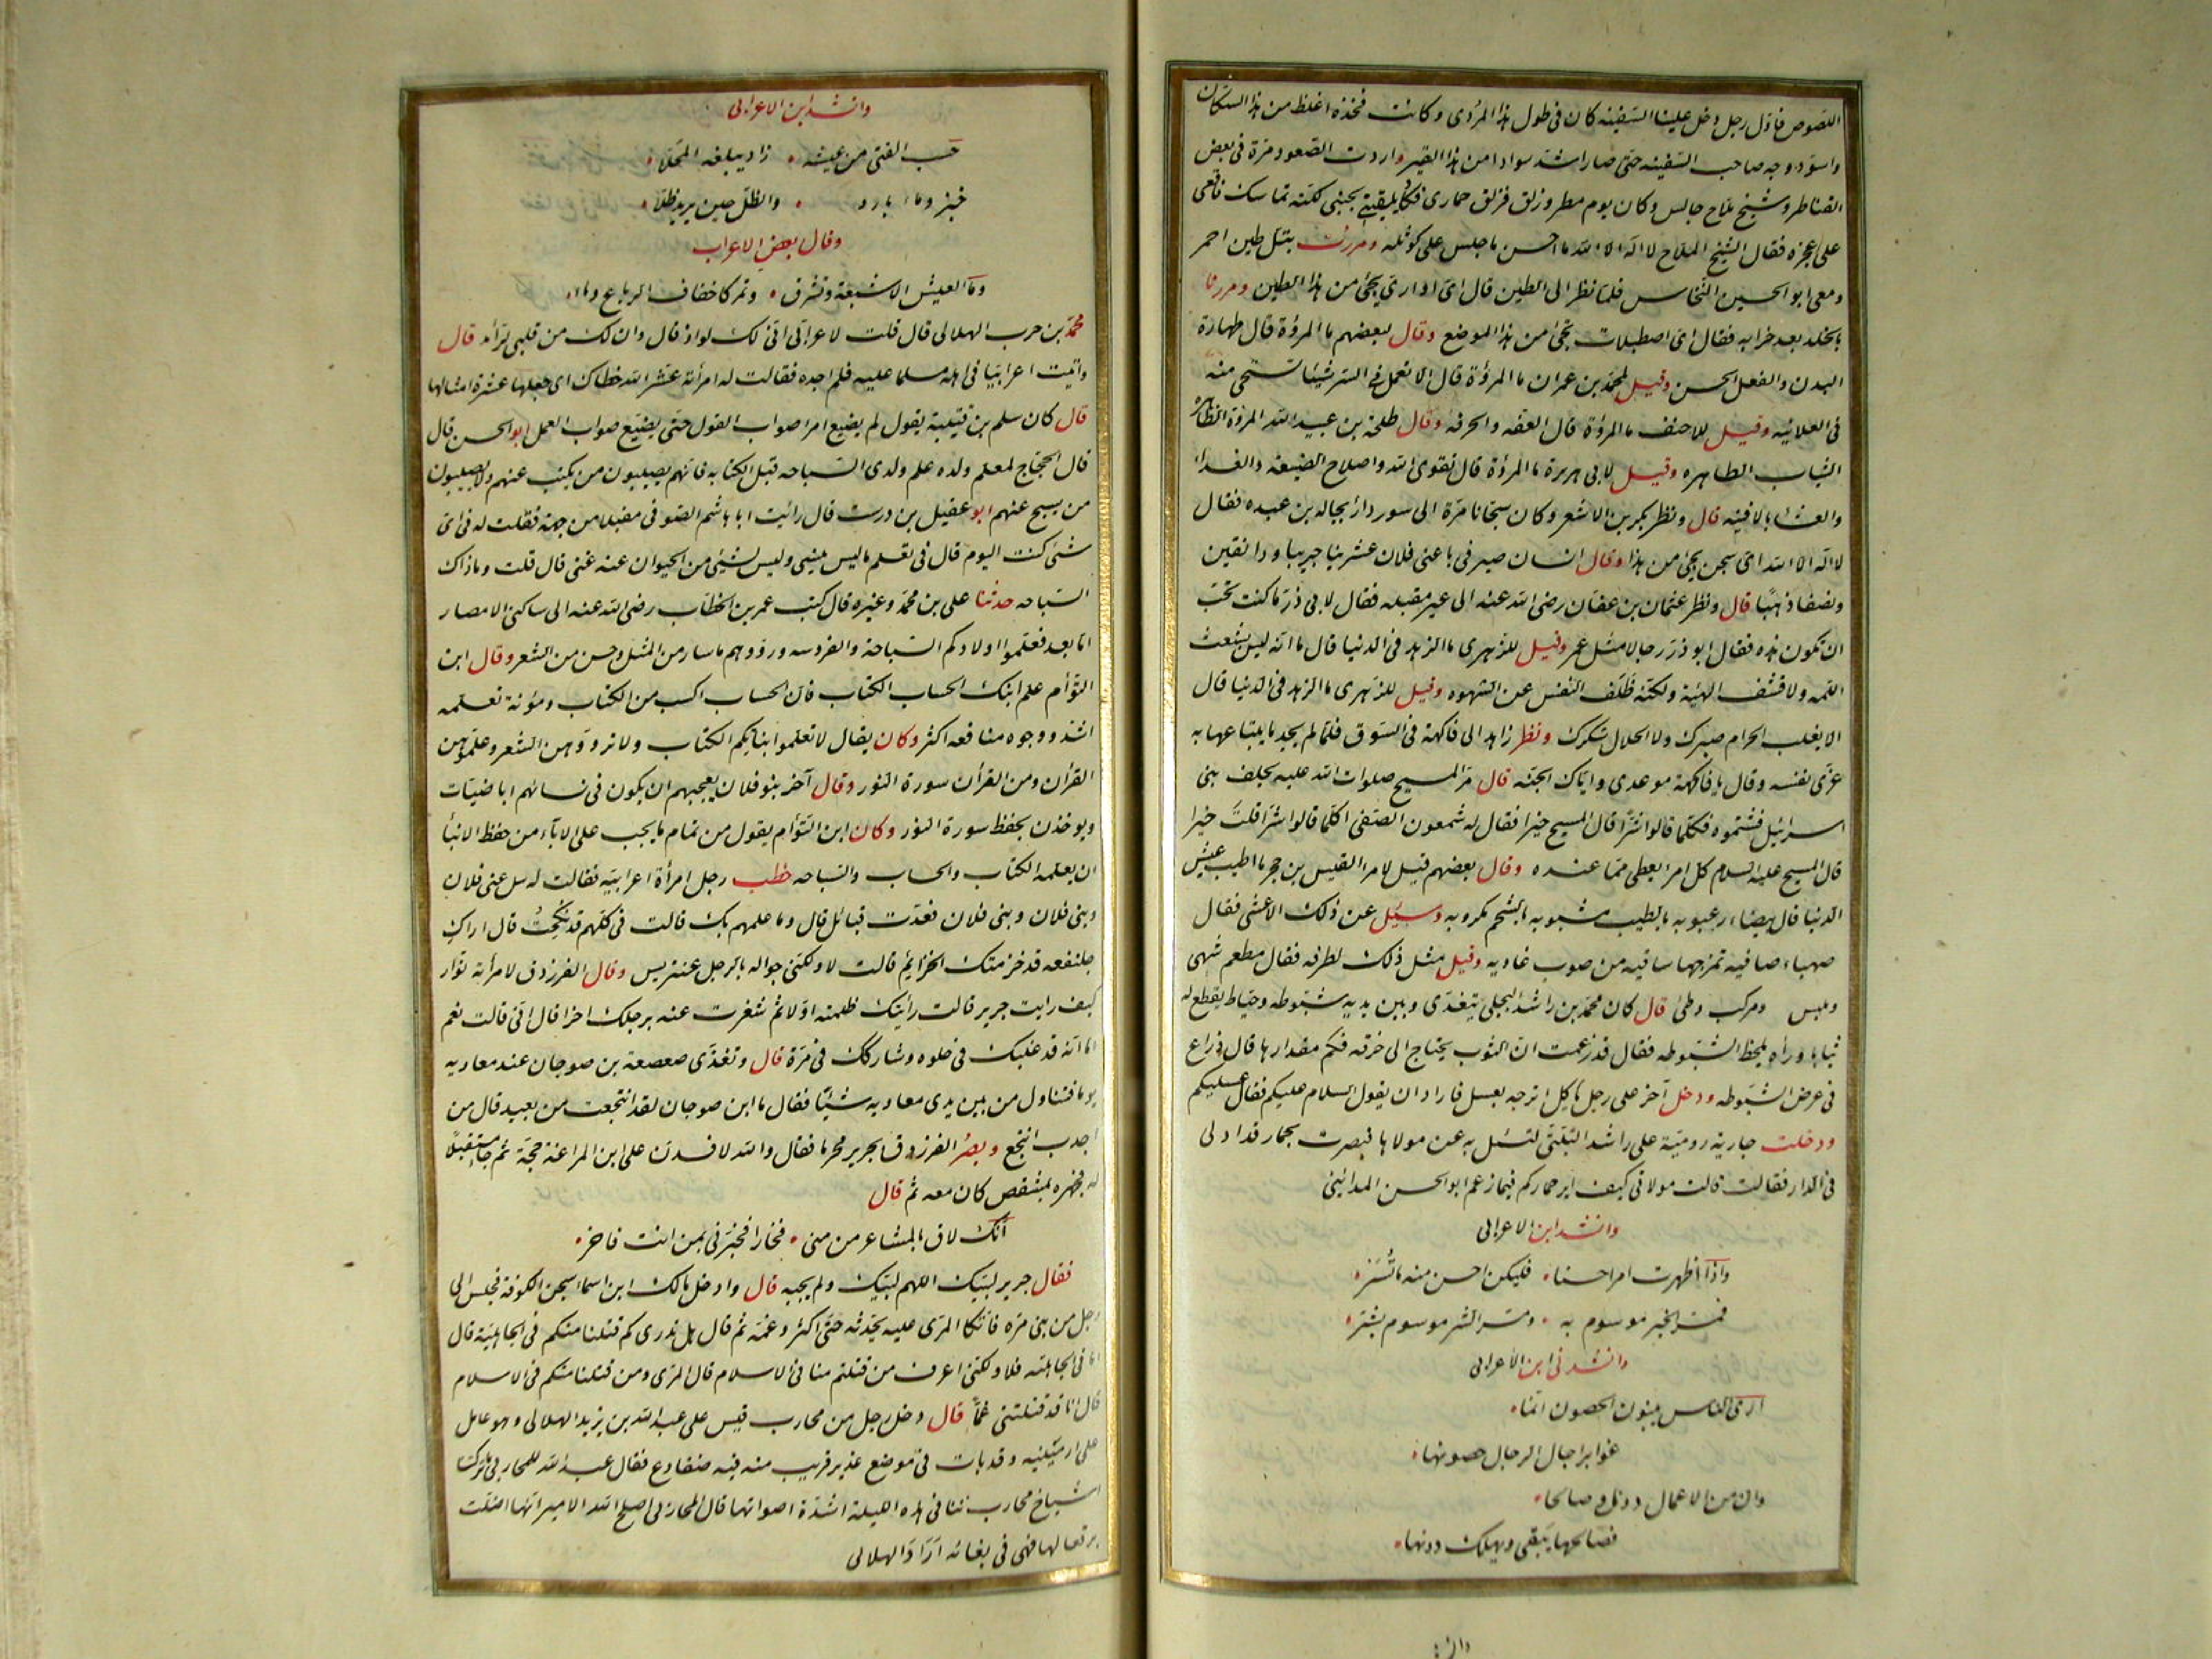 اللصوص فاول رجل دخل علينا السفينه كان فى طول هذا المردى وكانت فخذه اغلظ من هذا السكان
واسود وجه صاحب السفينه حتى صار اشد سوادا من هذا القير واردت الصعود مرة فى بعض
القناطر وشيخ ملاح جالس وكان يوم مطر وزلق فزلق حمارى فكاد يلقينى بجنبى لكنه تماسك فاقعى
على عجزه فقال الشيخ الملاح لا اله الا الله ما احسن ما جلس على كوثله ومررت بتل طين احمر
ومعى ابو الحسين النخاس فلما نظر الى الطين قال اى اوارى يجئ من هذا الطين ومررنا
بالخلد بعد خرابه فقال اى اصطبلات تجئ من هذا الموضع وقال لبعضهم ما المروة قال طهارة
البدن والفعل الحسن وقيل لمحمد بن عمران ما المروة قال الا تعمل فى السر شيئا تستحى منه
فى العلانيه وقيل للاحنف ما المروة قال العفه والحرفه وقال طلحة بن عبيد الله المروة الظاهره
الثياب الطاهره وقيل لابى هريرة ما المروة قال تقوى الله واصلاح الضيعه والغداء
والعشاء بالافنيه قال ونظر بكر بن الاشعر وكان سجانا مرة الى سور دار بجاله بن عبده فقال
لا اله الا الله اى سجن يجئ من هذا وقال انسان صيرفى باعنى فلان عشرينا جريبا ودانقين
ونصفا ذهبا قال ونظر عثمان بن عفان رضى الله عنه الى عير مقبله فقال لابى ذر ما كنت تحب
ان تكون هذه فقال ابو ذر رجالا مثل عمر وقيل للزهرى ما الزهد فى الدنيا قال ما انه ليس بشعث
اللمه ولا قشف الهيئة ولكنه ظلف النفس عن الشهوه وقيل للزهرى ما الزهد فى الدنيا قال
الا يغلب الحرام صبرك ولا الحلال شكرك ونظر زاهد الى فاكهة فى السوق فلما لم يجد ما يبتاعها به
عزى نفسه وقال يا فاكهة موعدى واياك الجنه قال مر المسيح صلوات الله عليه بحلف بنى
اسرائيل فشتموه فكلما قالوا شرا قال المسيح خيرا فقال له شمعون الصفى اكلما قالوا شرا قلت خيرا
قال المسيح عليه السلام كل امرا يعطى مما عنده وقال بعضهم قيل لامرا القيس بن حجر ما اطيب عيش
الدنيا قال بيضاء رعبوبه بالطيب مشبوبه بالشحم مكروبه وسئل عن ذلك الاعشى فقال
صهباء صافيه تمزجها ساقيه من صوب غاديه وقيل مثل ذلك لطرفه فقال مطعم شهى
وملبس ومركب وطئ قال كان محمد بن راشد البجلى يتغدى وبين يديه شبوطه وخياط يقطع له
ثيابا وراه يلحظ الشبوطه فقال قد زعمت ان الثوب يحتاج الى خرقه فكم مقدارها قال ذراع
فى عرض الشبوطه ودخل آخر على رجل ياكل اترجه بعسل فاراد ان يقول السلام عليكم فقال عسليكم
ودخلت جارية رومية على راشد البتى لتسئل به عن مولاها فبصرت بحمار قد ادلى
فى الدار فقالت قالت مولاتى كيف اير حماركم فيما زعم ابو الحسن المدائنى
وانشد ابن الاعرابى
واذا اظهرت امرا حسنا فليكن احسن منه ما تسر
فمسر الخير موسوم به ومسر الشر موسوم بشر
وانشدنى ابن الاعرابى
ارى الناس يبنون الحصون انما
غوابر اجال الرجال حصونها
وان من الاعمال دونا وصالحا
فصالحها يبقى ويهلك دونها
وانشد ابن الاعرابى
حسب الفتى من عيشه زاد يبلغه المحلا
خبز وماء بارد والظل حين يريد ظلا
وقال بعض الاعراب
وما العيش الا شبعة وتشرق وتمر كاخفاف الرباع وماء
محمد بن حرب الهلالى قال قلت لاعرابى انى لك لواد قال وان لك من قلبى لرائد قال
واتيت اعرابيا فى اهله مسلما عليه فلم اجده فقالت له امرأته عشر الله خطاك اى جعلها عشرة امثالها
قال كان سلم بن قتيبة يقول لم يضيع امرا صواب القول حتى يضيع صواب العمل ابو الحسن قال
قال الحجاج لمعلم ولده علم ولدى السباحه قبل الكتابه فانهم يصيبون من يكتب عنهم ولا يصيبون
من يسبح عنهم ابو عقيل بن درست قال رائيت ابا هاشم الصوفى مقبلا من جهة فقلت له فى اى
شئ كنت اليوم قال فى تعلم ما ليس ينسى وليس لشئ من الحيوان عنه غنى قال قلت وما ذاك
السباحه حدثنا على بن محمد وغيره قال كتب عمر بن الخطاب رضى الله عنه الى ساكنى الامصار
اما بعد فعلموا اولادكم السباحة والفروسه ورووهم ما سار من المثل وحسن من الشعر وقال ابن
التوأم علم ابنك الحساب الكتاب فان الحساب اكسب من الكتاب ومؤنة تعلمه
اشد ووجوه منافعه اكثر وكان يقال لا تعلموا بناتكم الكتاب ولا تروّوهن الشعر وعلموهن
القرآن ومن القرآن سورة النور وقال آخر بنو فلان يعجبهم ان يكون فى نسائهم اباضيات
ويوخذن بحفظ سورة النور وكان ابن التوأم يقول من تمام ما يجب على الاباء من حفظ الابنأ
ان يعلمه الكتاب والحساب والسباحه خطب رجل امرأة اعرابيه فقالت له سل عنى فلان
وبنى فلان وبنى فلان فعدت قبائل قال وما علمهم بك قالت فى كلهم قد نكحت قال اراك
جلنفعه قد خزمتك الخزائم قالت لا ولكنى جواله بالرجل عنتريس وقال الفرزدق لامرأته نوار
كيف رايت جرير قالت رائيتك ظلمته اولا ثم شغرت عنه برجلك اخرا قال انى قالت نعم
اما انه قد غلبك فى حلوه وشاركك فى مرة قال وتغدى صعصعة بن صوجان عند معاويه
يوما فتناول من بين يدى معاويه شيئا فقال يا ابن صوجان لقد انتجعت من بعيد قال من
اجدب انتجع وبصر الفرزدق بجرير محرما فقال والله لافسدن على ابن المراغة حجه ثم جاء مستقبلا
له فجهره بمشقص كان معه ثم قال
انك لاق بالمشاعر من منى فخارا فخبرنى بمن انت فاخر
فقال جرير لبيك اللهم لبيك ولم يجبه قال وادخل مالك ابن اسماء سجن الكوفة فجلس الى
رجل من بنى مره فاتكا المرى عليه يحدثه حتى اكثر وغمه ثم قال هل تدرى كم قتلنا منكم فى الجاهلية قال
اما فى الجاهلته فلا ولكنى اعرف من قتلتم منا فى الاسلام قال المرى ومن قتلنا منكم فى الاسلام
قال انا قد قتلتنى غما قال دخل رجل من محارب قيس على عبد الله بن يزيد الهلالى وهو عامل
على ارمينيه وقد بات فى موضع غدير قريب منه فيه ضفادع فقال عبد الله للمحاربى ما تركتنا
اشياخ محارب ننا فى هذه الليلة اشدة اصواتها قال المحاربى اصلح الله الامير انها اضلت
برقعا لها فهى فى بغائه اراد الهلالى